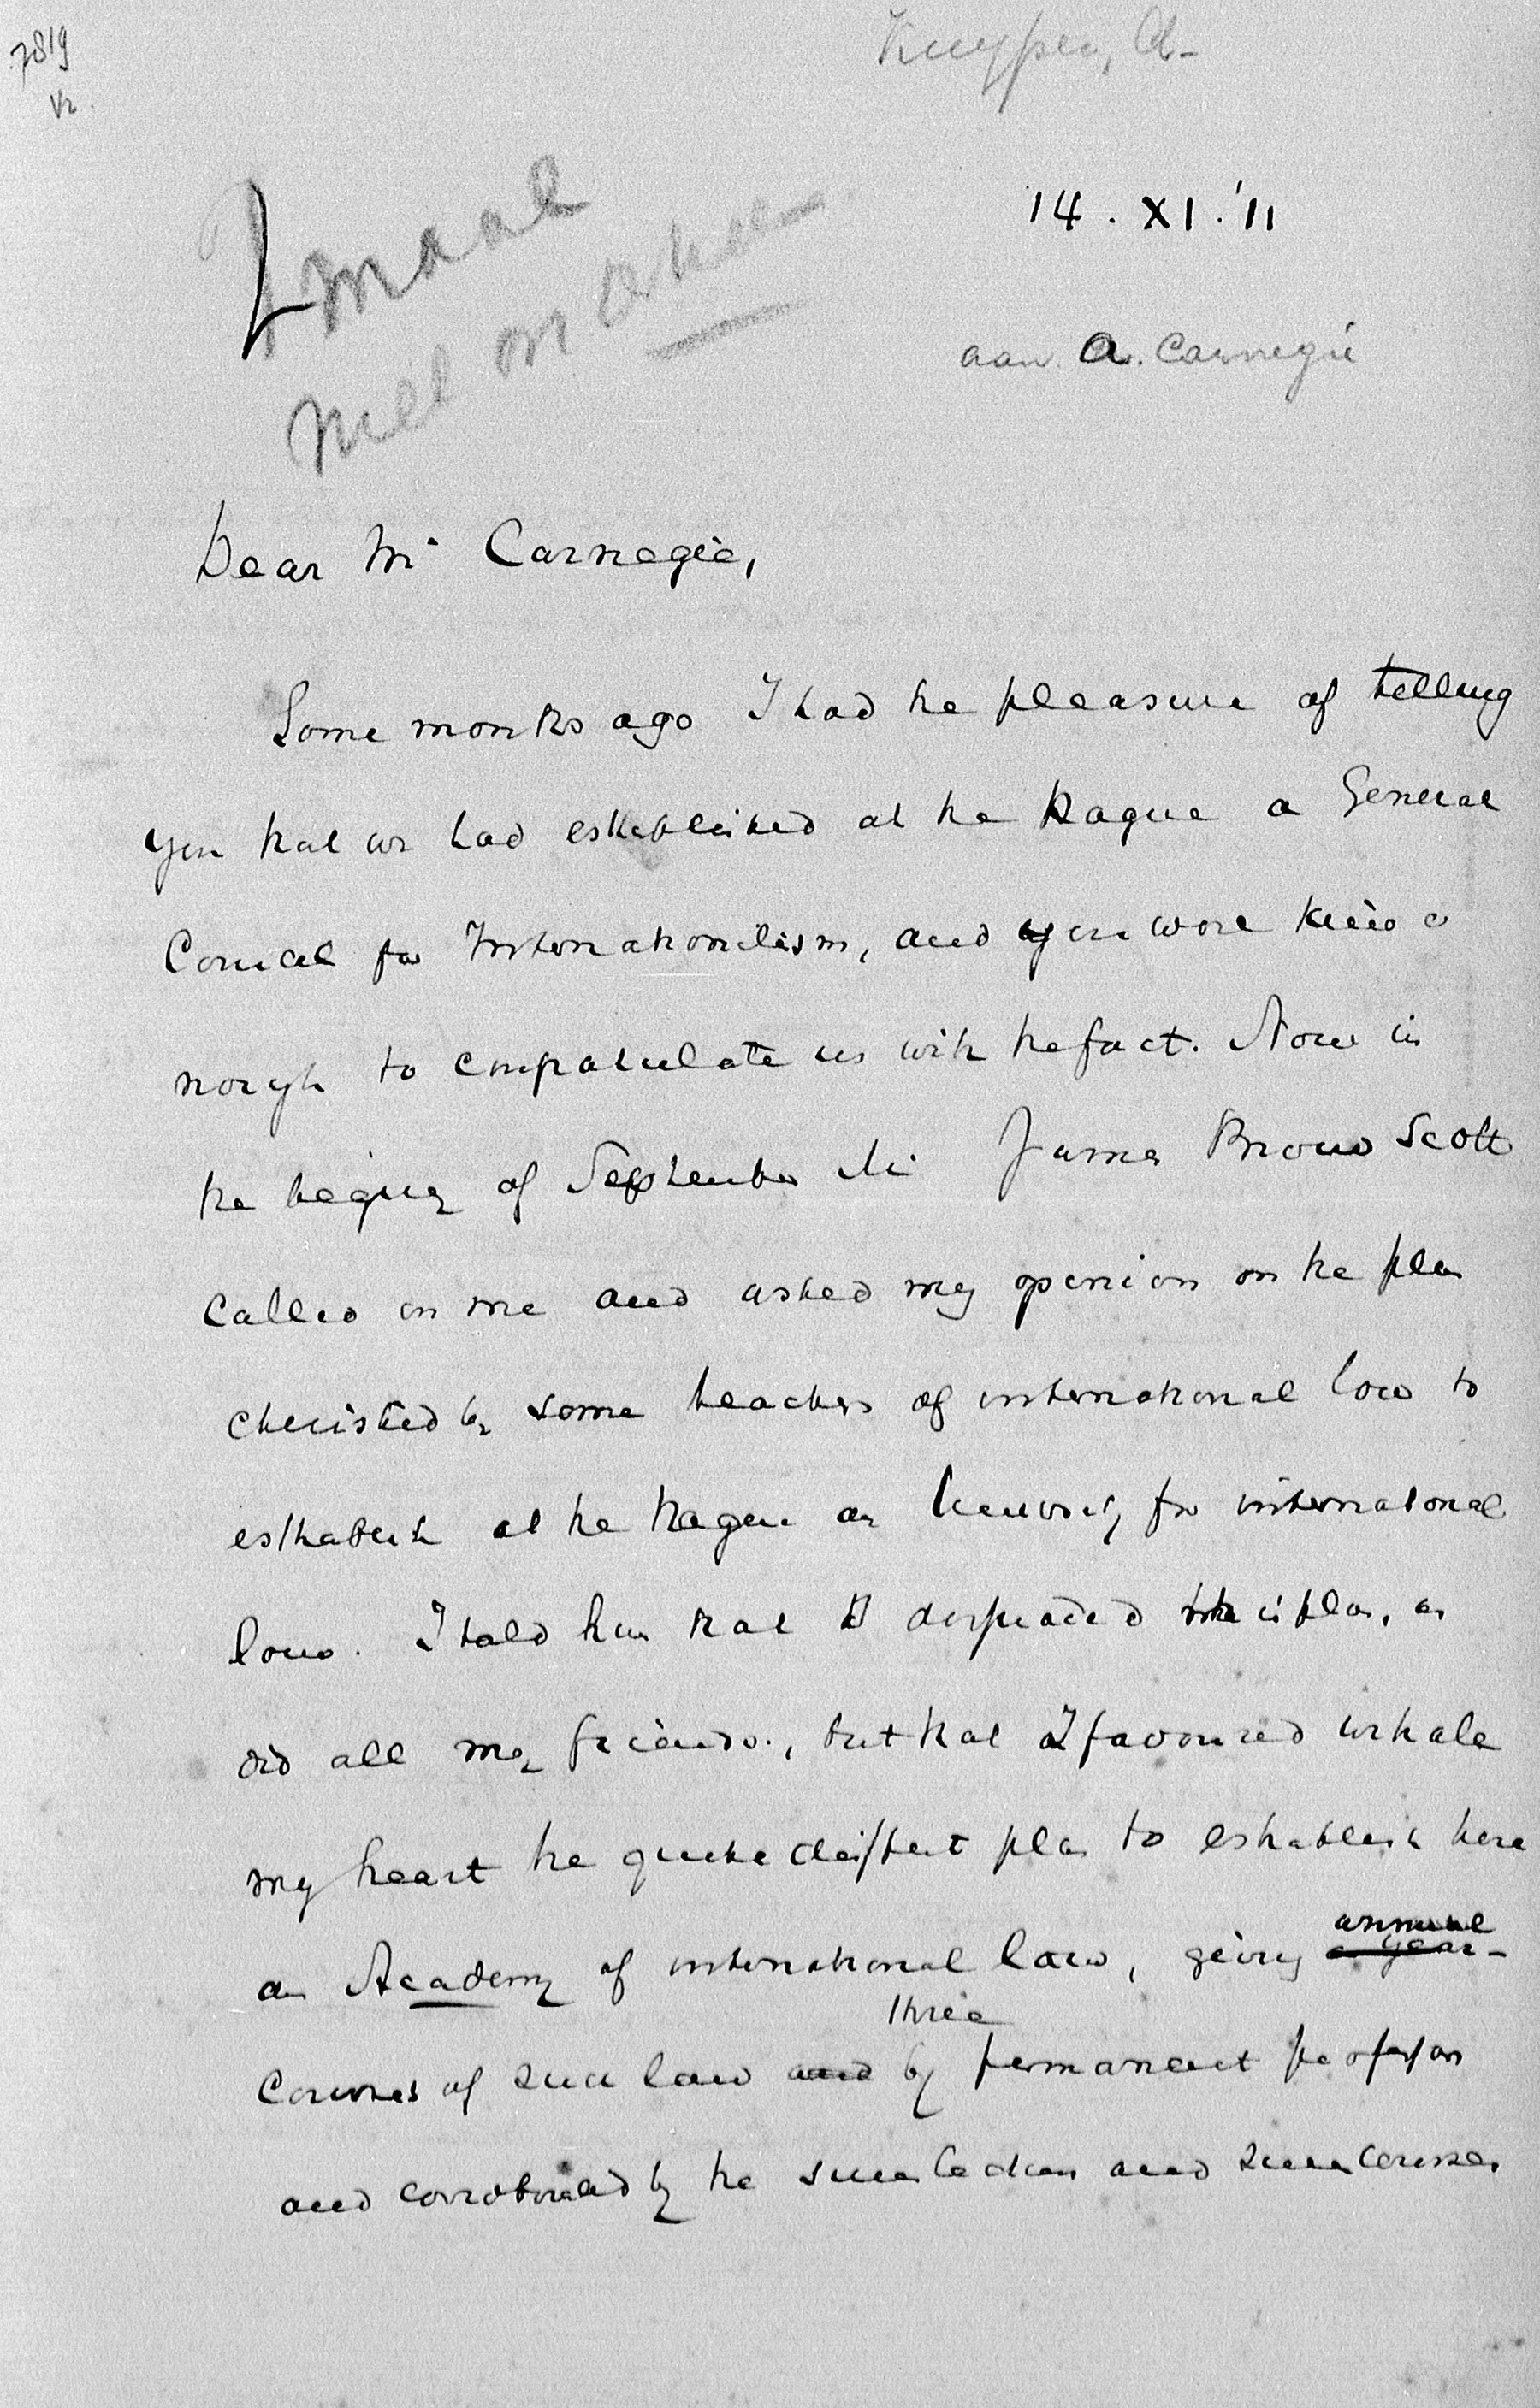 7819
Kuyper, A.
14 . XI . '11
aan A. Carnegie
Dear Mr Carnegie,
Some months ago I had the pleasure of telling
you that we had established at the Hague a General
Council for Internationalism, and you were kind e
nough to congratulate us with the fact. Now in
the begining of September Mr James Brown Scott
called on me and asked my opinion on the plan
cherished by some teachers of international law to
establish at the Hague an University for international
law. I told him that I this plan, as
did all my friends, but that I favoured with all
my heart the quite different plan to establish here
an Academy of international law, giving annual
a year-
three
courses of such law and by permanent professors
and corroborated by the summer and summer courses